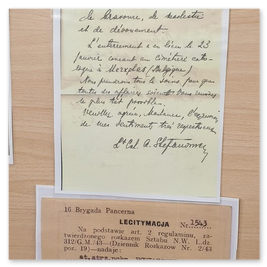 de bravoure, de modestie
et de dévouement.
L'enterrement a eu lieu le 23
janvier courant au cimetière catho-
lique à Merxplas (Belgique)
Nous prendrons tout le soins pour que
toutes des affaires soient Vous
le plus tôt possible.
Veuillez agréer, Madame, l'expression
de mes sentiments très respectueux.
Lt Col. A. Stefanowicz
10 Brygada Pancerna
LEGITYMACJA Nr. 1543
Na podstawie art. 2 regulaminu, za-
twierdzonego rozkazem Sztabu N.W. L.dz.
312/G.M./43—(Dziennik Rozkazów Nr. 2/43
poz. 19)—nadaję: